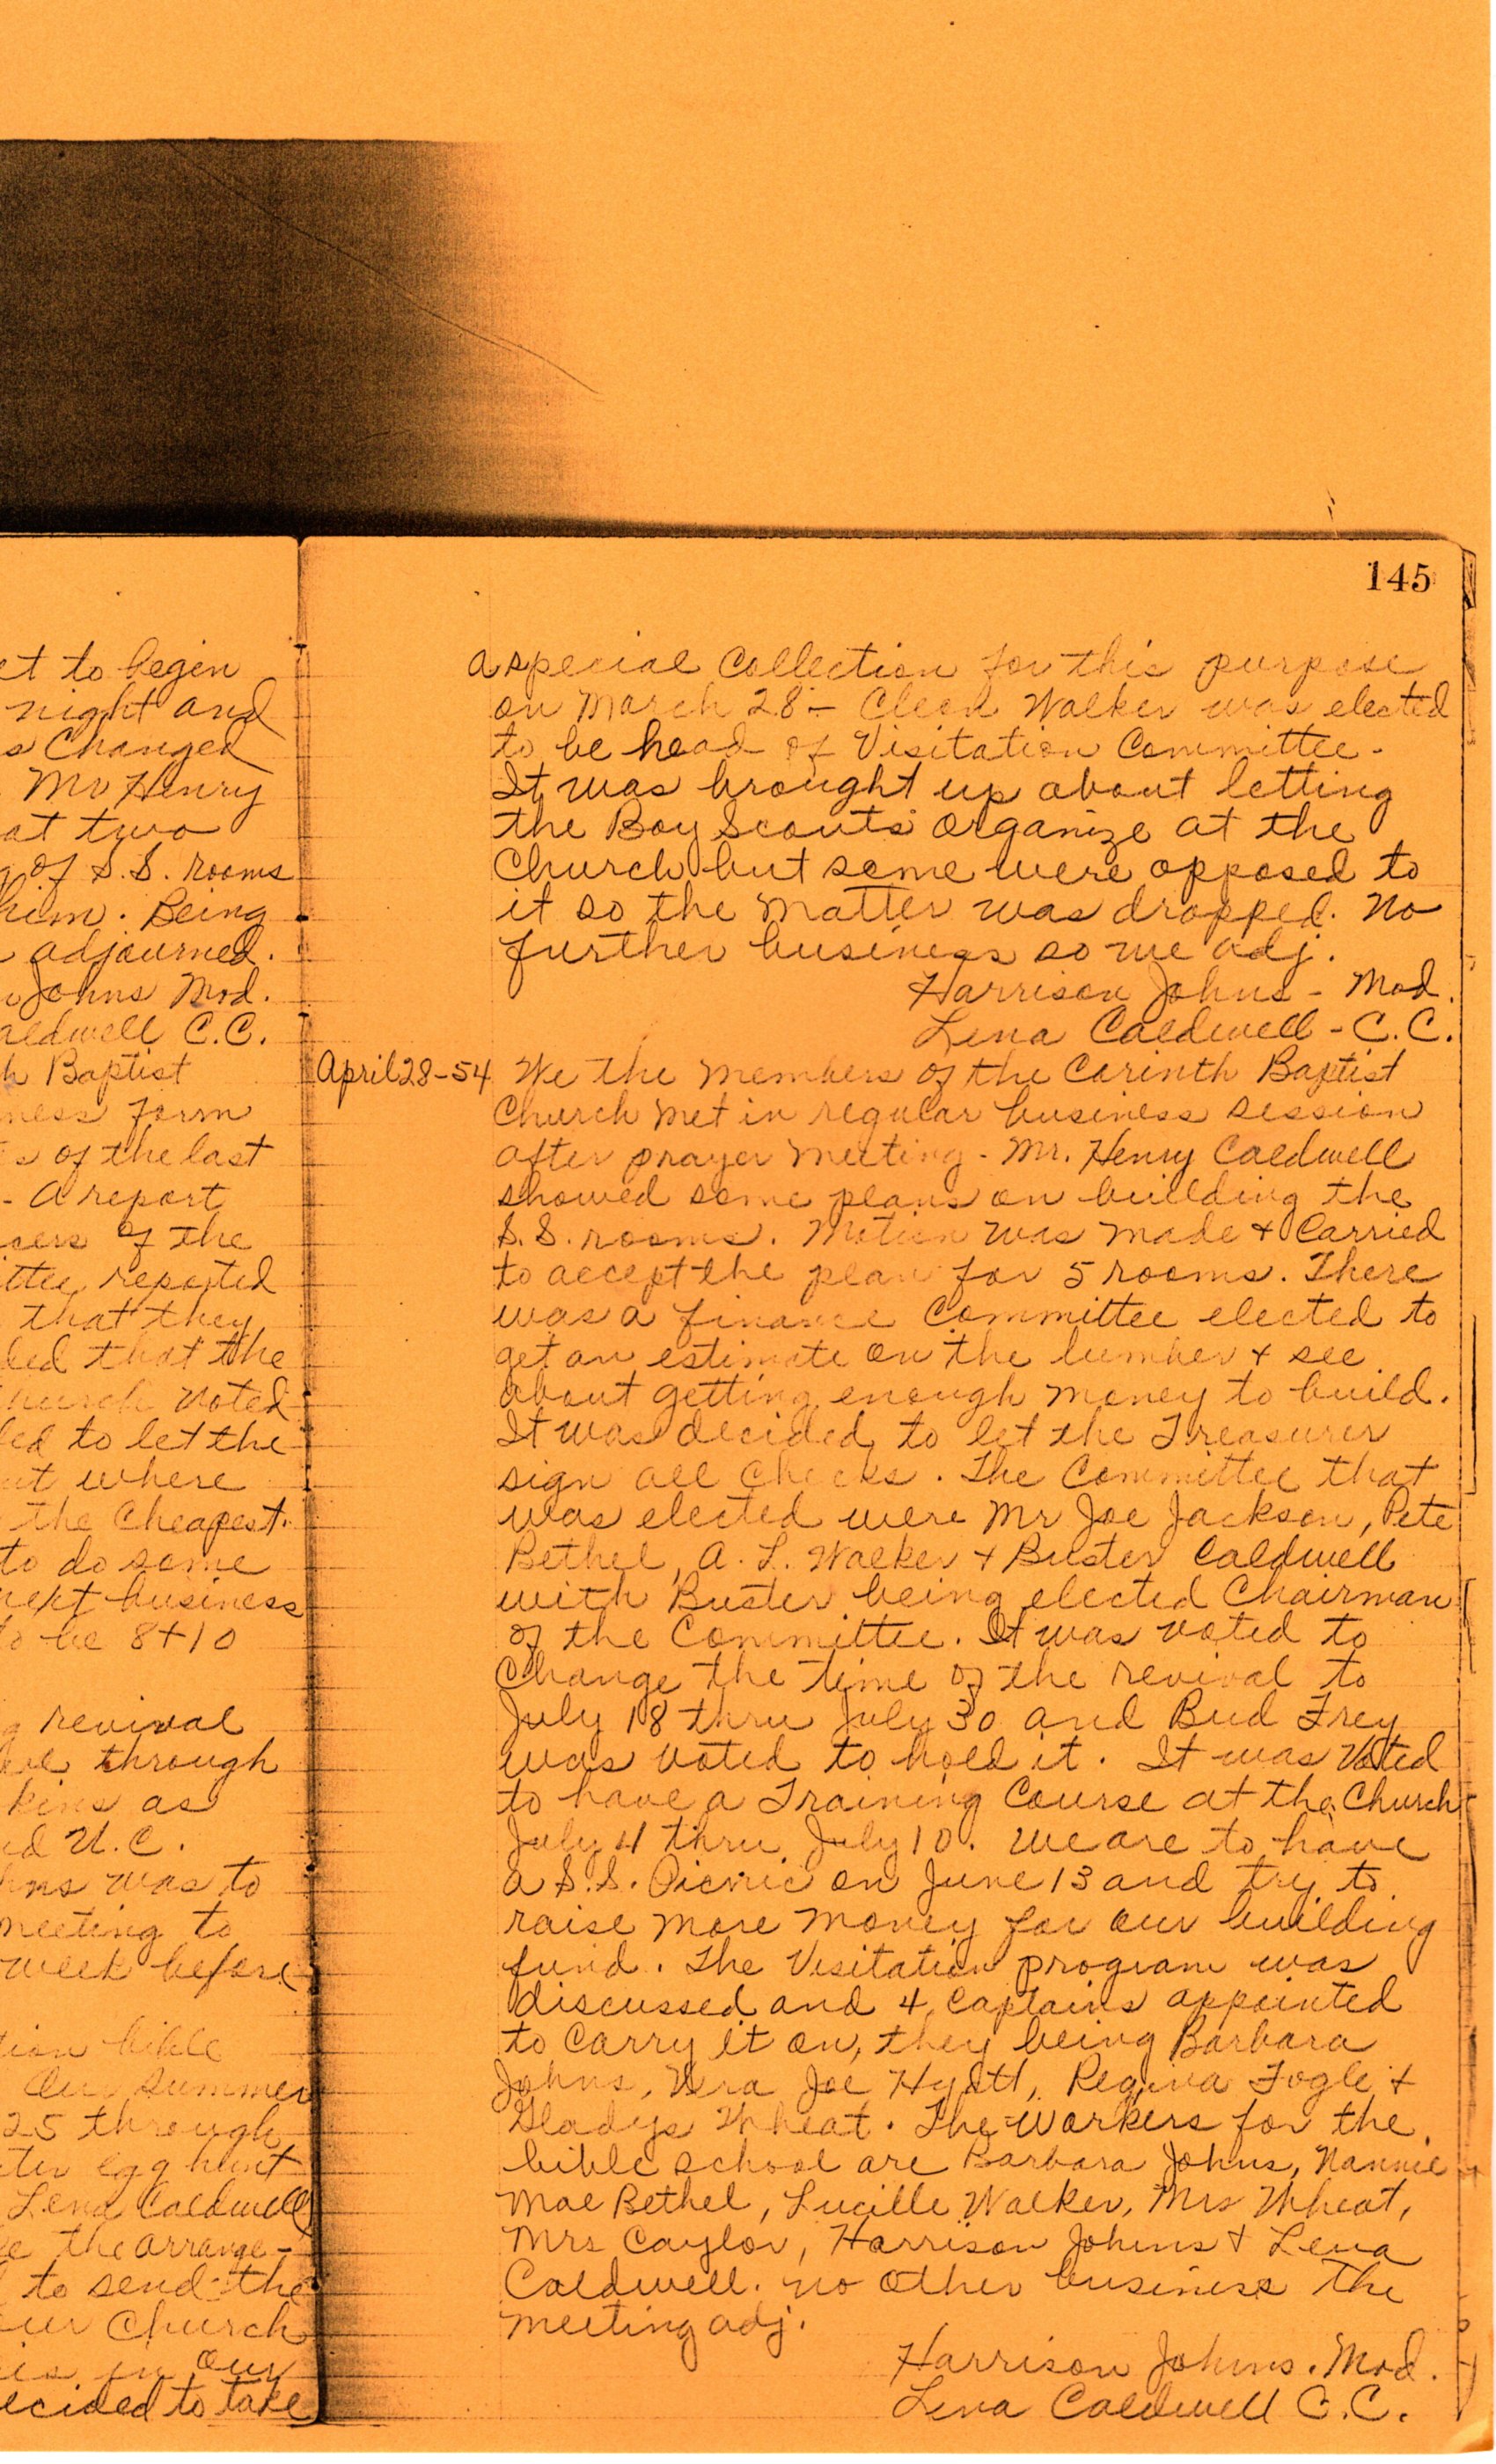 et to begin
night and
s Changed
Mr Henry
at two
of S.S. rooms
him. Being
adjourned.
Johns Mod.
aldwell C.C.
h Baptist
ness form
s of the last
- A report
cers of the
ttee reported
that they
ded that the
hurch voted
ed to let the
ut where
the Cheapest.
to do some
next business
to be 8+10
g revival
through
kins as
ed V.C.
hns was to
meeting to
week before
tion bible
Our summer
25 through
ter egg hunt
Lena Caldwell
e the arrange-
to send the
ur Church
in our
ecided to take
145
a special Collection for this purpose
on March 28 - Cleon Walker was elected
to be head of Visitation Committee -
It was brought up about letting
the Boy Scouts organize at the
Church but some were opposed to
it so the matter was dropped. No
further business so we adj.
Harrison Johns - Mod.
Lena Caldwell - C.C.
April 28-54 We the members of the Corinth Baptist
Church met in regular business session
after prayer meeting - Mr. Henry Caldwell
showed some plans on building the
S.S. rooms. Motion was made + Carried
to accept the plan for 5 rooms. There
was a finance Committee elected to
get an estimate on the lumber + see
about getting enough money to build.
It was decided to let the Treasurer
sign all Checks. The Committee that
was elected were Mr Joe Jackson, Pete
Bethel, A. L. Walker + Buster Caldwell
with Buster being elected Chairman
of the Committee. It was voted to
Change the time of the revival to
July 18 thru July 30 and Bud Frey
was voted to hold it. It was Voted
to have a Training Course at the Church
July 4 thru July 10. We are to have
a S.S. Picnic on June 13 and try to
raise more money for our building
fund. The Visitation program was
discussed and 4 Captains appointed
to Carry it on, they being Barbara
Johns, Vera Joe Hyatt, Regina Fogle +
Gladys Wheat. The workers for the
bible school are Barbara Johns, Nannie
Mae Bethel, Lucille Walker, Mrs Wheat,
Mrs Caylor, Harrison Johns + Lena
Caldwell. No other business the
meeting adj.
Harrison Johns. Mod.
Lena Caldwell C.C.